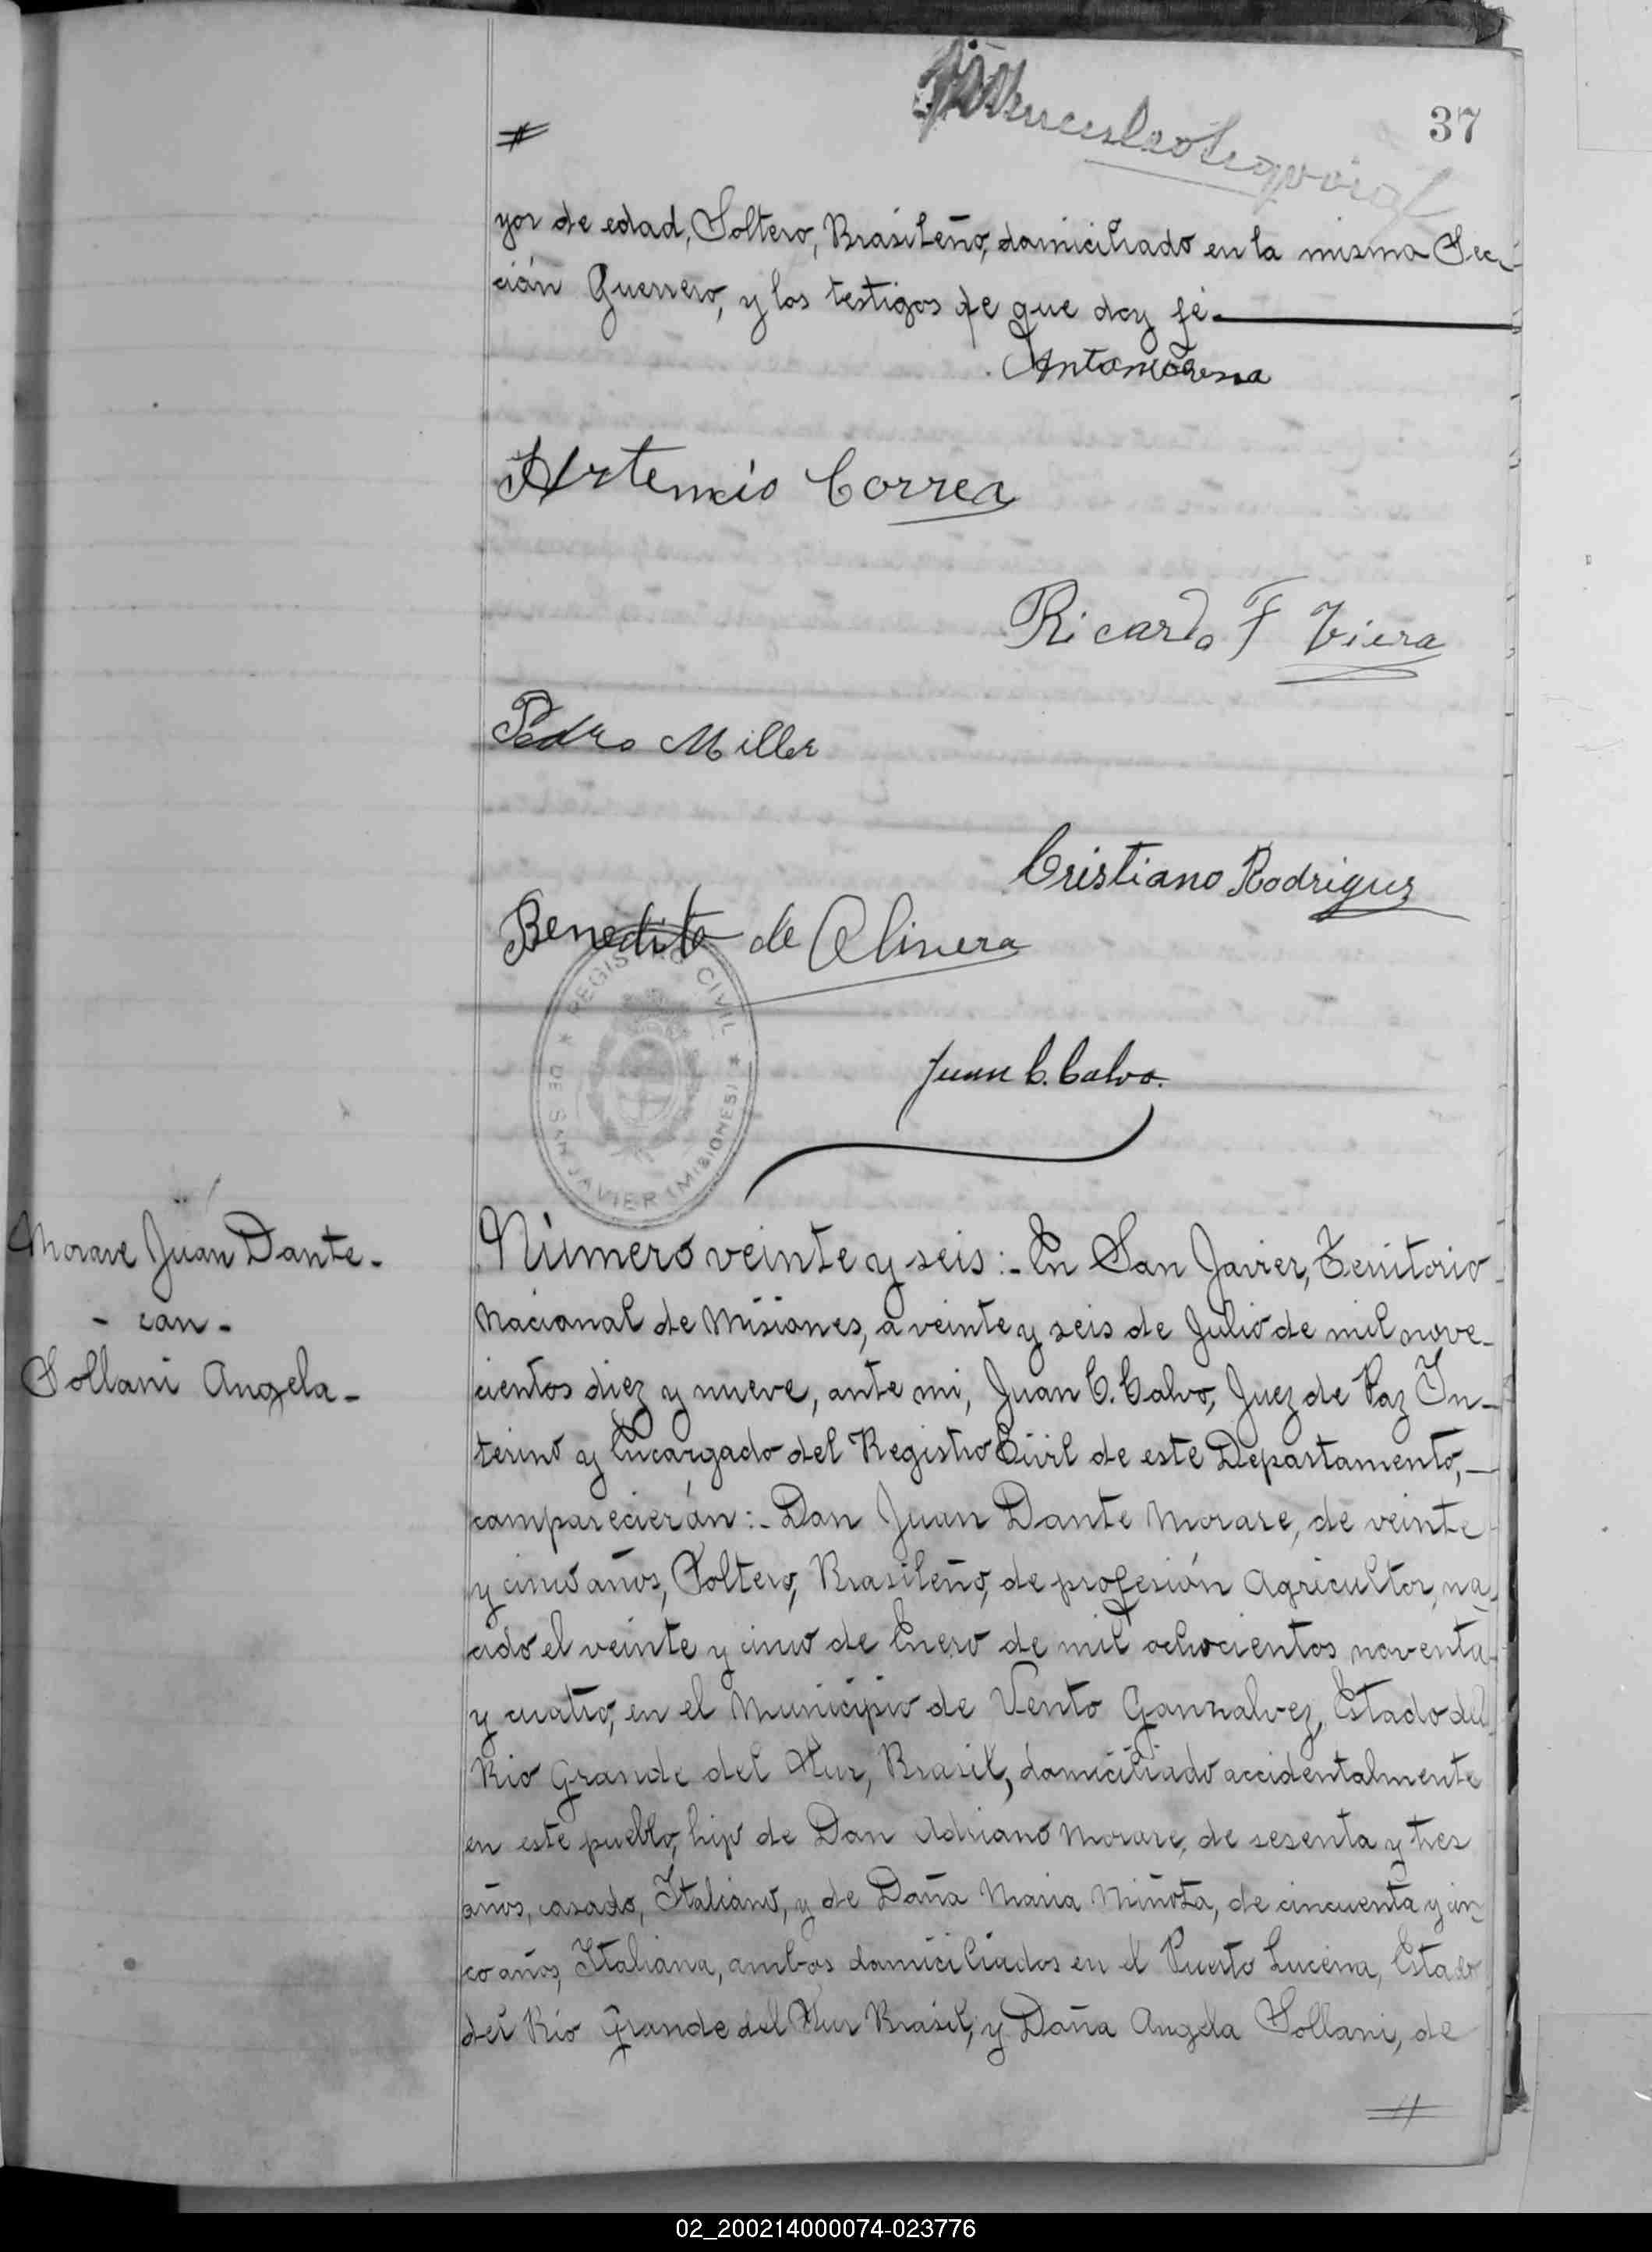 37
#
yor de edad, Soltero, Brasileño, domiciliado en la misma Sec-
ción Guerrero, y los testigos de que doy fé.
Artemio Correa
Ricardo F Viera
Pedro Miller
Cristiano Rodriguez
Benedito de Olivera
REGISTRO CIVIL
DE SAN JAVIER (MISIONES)
Juan C. Calvo.
Morare Juan Dante-
- con -
Sollani Angela-
Número veinte y seis:- En San Javier, Territorio
Nacional de Misiones, a veinte y seis de Julio de mil nove-
cientos diez y nueve, ante mi, Juan C. Calvo, Juez de Paz In-
terino y Encargado del Registro Civil de este Departamento,
comparecierón:- Don Juan Dante Morare, de veinte
y cinco años, Soltero, Brasileño, de profesión Agricultor, na-
cido el veinte y cinco de Enero de mil ochocientos noventa
y cuatro, en el Municipio de Vento Gonzalvez, Estado del
Rio Grande del Sur, Brasil, domiciliado accidentalmente
en este pueblo, hijo de Don Adriano Morare, de sesenta y tres
años, casado, Italiano, y de Doña Maria Miñota, de cincuenta y cin-
co años, Italiana, ambos domiciliados en el Puerto Lucena, Estado
del Rio Grande del Sur Brasil; y Doña Angela Sollani, de
#
02_200214000074-023776